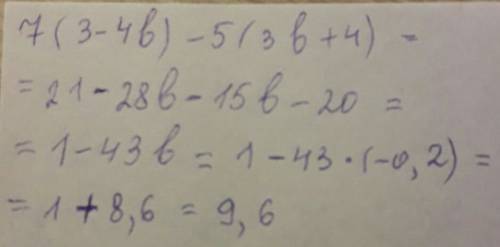 7(3-4b)-5(3b+4)=
=21-28b-15b-20=
=1-43b=1-43·(-0,2)=
=1+8,6=9,6